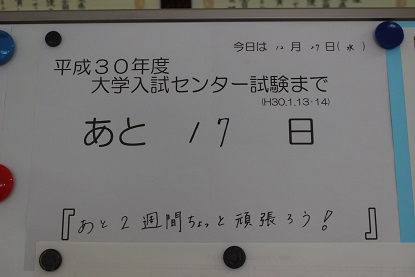 今日は 12 月 27 日( 水 )
平成３０年度
大学入試センター試験まで
(H30.1.13・14)
あと 17 日
『あと2週間ちょっと頑張ろう!』